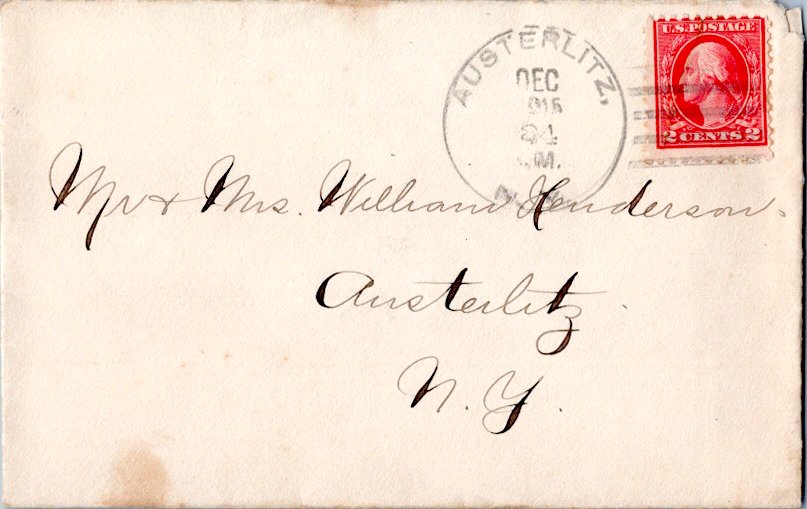 AUSTERLITZ,
DEC
24
.M.
N.Y.
U.S. POSTAGE
2 CENTS 2
Mr & Mrs. William Henderson.
Austerlitz
N. Y.